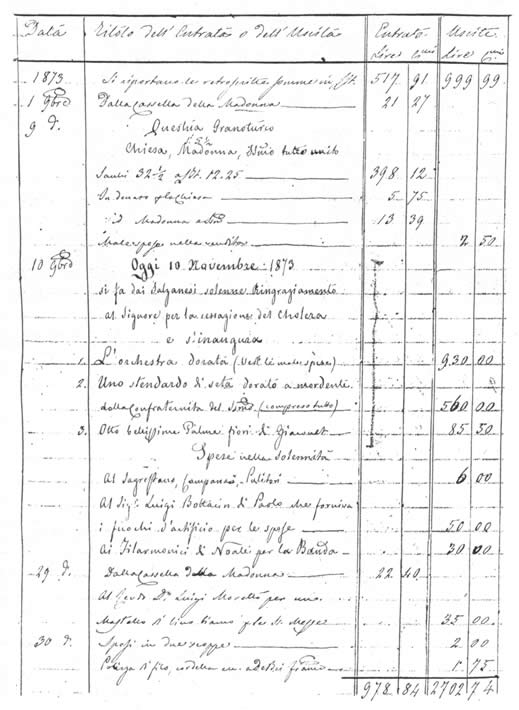 Data Titolo dell'Entrata e dell'Uscita Entrata Uscite
Lire Cmi Lire Cmi
1873 Si riportano le retroscritte somme in 517 91 999 99
1 9bre Dalla Cassella della Madonna 21 27
9 d. Questua Granoturco
Chiesa, Madonna, tutto unito
32 1/2 a 12.25 398 12
In denaro Chiesa 5 75
id Madonna 13 39
spese nella 2 50
10 9bre Oggi 10. Novembre 1873
si fa dai Salzanesi solenne Ringraziamento
al Signore per la cessazione del Cholera
e s'inaugura
1. L'orchestra dorata 930 00
2. Uno stendardo di seta dorato a mordente
della Confraternita del (compreso tutto) 560 00
3. Otto bellissime Palme fiori di 85 50
Spese nella solennità
Al Sagrestano, Campanaro, Pulitori 6 00
Al Sigr. Luigi Bottacin di Paolo che forniva
i fuochi d'artificio per le spese 50 00
Ai Filarmonici di Noale per la Banda 30 00
29 d. Dalla Cassella della Madonna 22 40
Al Dn. Luigi per una
35 00
30 d. Spesi in due 2 00
filo, cordella 1 75
978 84 2702 74